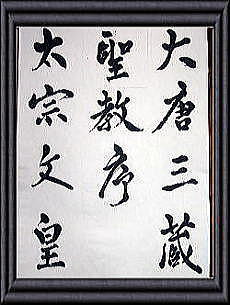 大唐三藏
聖教序
太宗文皇